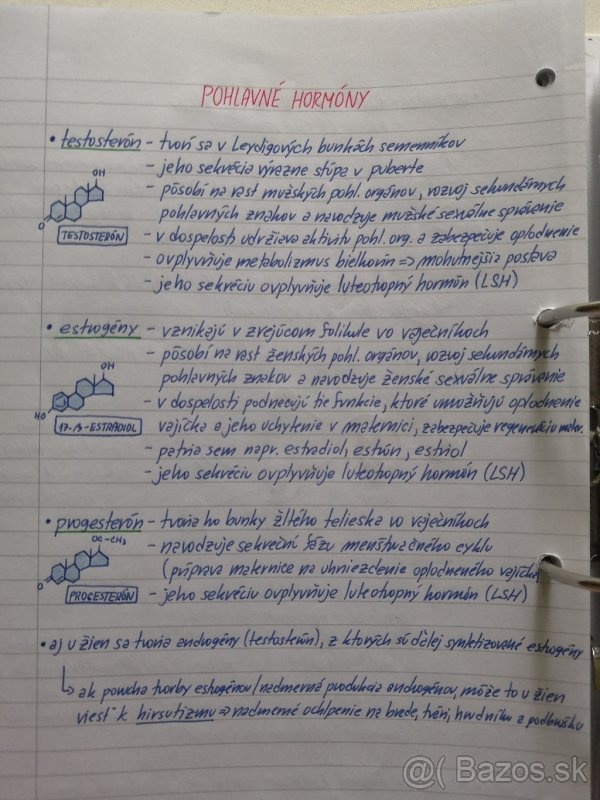 POHLAVNÉ HORMÓNY
• testosterón - tvorí sa v Leydigových bunkách semenníkov
- jeho sekrécia výrazne stúpa v puberte
OH
- pôsobí na rast mužských pohl. orgánov, rozvoj sekundárnych
pohlavných znakov a navodzuje mužské sexuálne správanie
O
TESTOSTERÓN
- v dospelosti udržiava aktivitu pohl. org. a zabezpečuje oplodnenie
- ovplyvňuje metabolizmus bielkovín => mohutnejšia postava
- jeho sekréciu ovplyvňuje luteotropný hormón (LSH)
• estrogény - vznikajú v zrejúcom folikule vo vaječníkoch
- pôsobí na rast ženských pohl. orgánov, rozvoj sekundárnych
OH
pohlavných znakov a navodzuje ženské sexuálne správanie
- v dospelosti podnecujú tie funkcie, ktoré umožňujú oplodnenie
HO
17-β-ESTRADIOL
vajíčka a jeho uchytenie v maternici, zabezpečuje regeneráciu mater.
- patria sem napr. estradiol, estrón, estriol
- jeho sekréciu ovplyvňuje luteotropný hormón (LSH)
• progesterón - tvoria ho bunky žltého telieska vo vaječníkoch
OC-CH₃
- navodzuje sekreční fázu menštruačného cyklu
(príprava maternice na uhniezdenie oplodneného vajíčka
O
PROGESTERÓN
- jeho sekréciu ovplyvňuje luteotropný hormón (LSH)
• aj u žien sa tvoria androgény (testosterón), z ktorých sú ďalej syntetizované estrogény
↳ ak porucha tvorby estrogénov/nadmerná produkcia androgénov, môže to u žien
viesť k hirsutizmu => nadmerné ochlpenie na brade, tvári, hrudníku a podbrušku
@( Bazos.sk